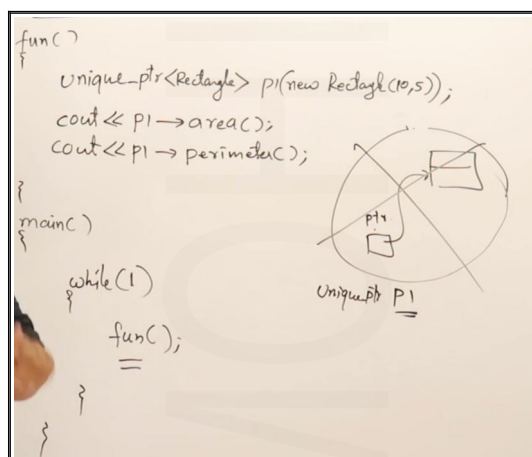 fun()
{
unique_ptr<Rectangle> p1(new Rectagle(10,5));
cout<< p1→area();
cout<<p1→ perimeter();
}
main()
{
while(1)
{
fun();
}
}
ptr
Unique ptr P1